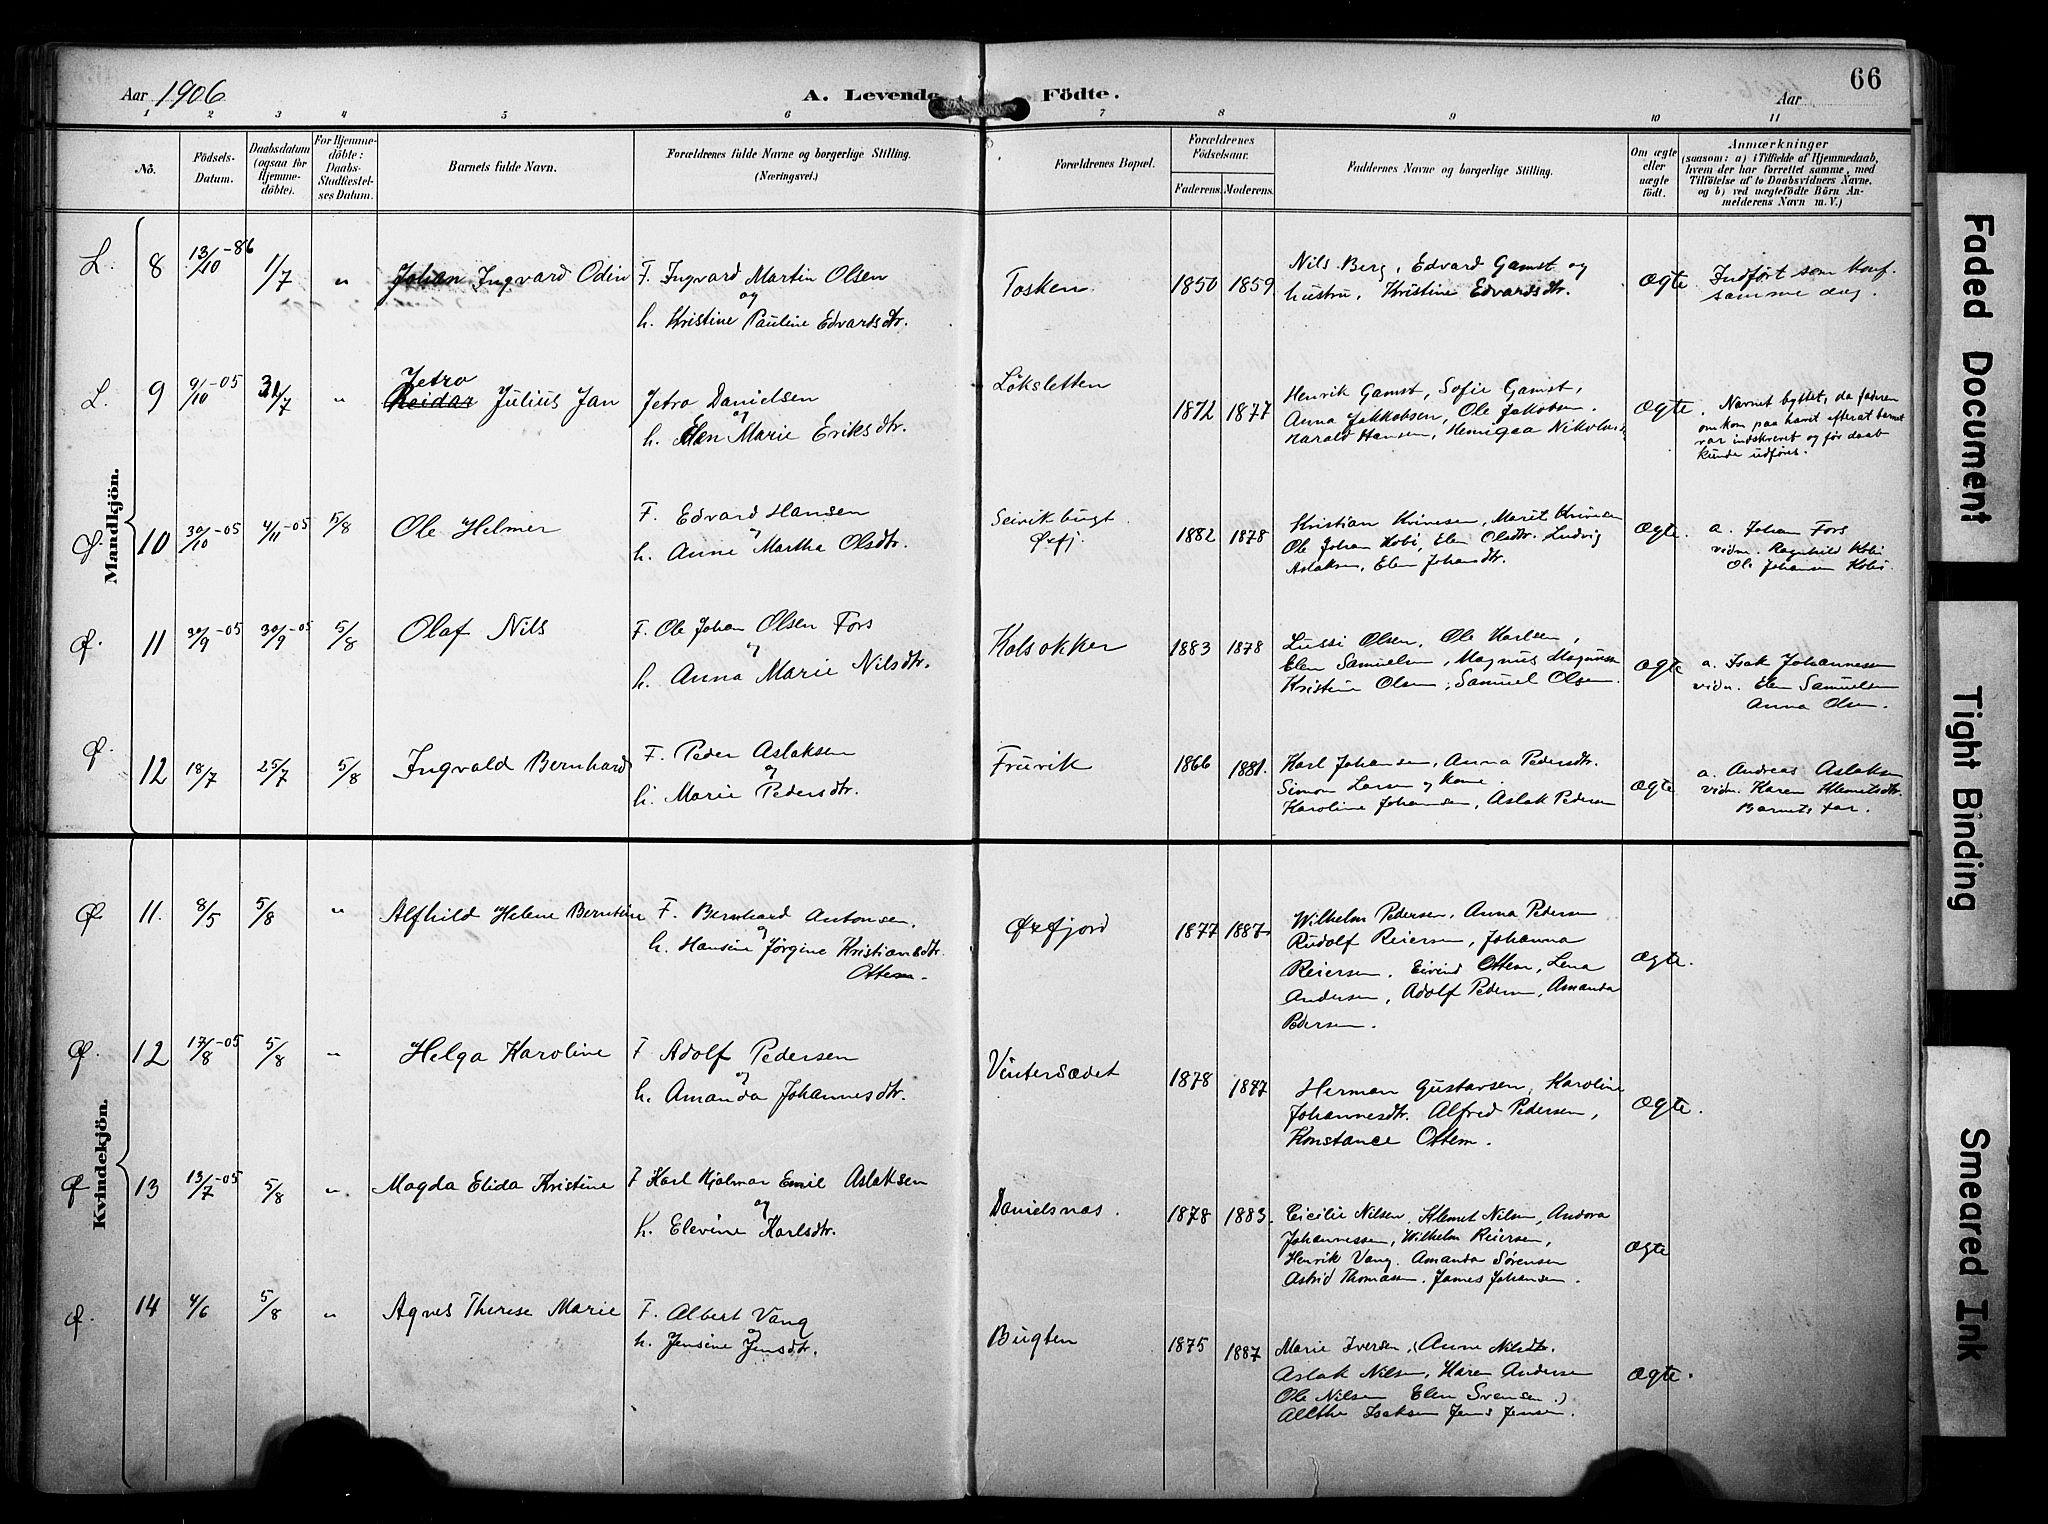 66
Aar 1906
A. Levende Födte.
Aar
1 2 3 4 5 6 7 8 9 10 11
No.
Födsels-Datum.
Daabsdatum (ogsaa for Hjemmedöbte).
For Hjemmedöbte: Daabs-Stadfæstelses Datum.
Barnets fulde Navn.
Forældrenes fulde Navne og borgerlige Stilling. (Næringsvei.)
Forældrenes Bopæl.
Forældrenes Födselsaar.
Faderens. Moderens.
Faddernes Navne og borgerlige Stilling.
Om ægte eller uægte födt.
Anmærkninger
(saasom: a) i Tilfælde af Hjemmedaab, hvem der har forrettet samme, med Tilföielse af to Daabsvidners Navne, og b) ved uægtefödte Börn Anmelderens Navn m. V.)
Mandkjön.
L. 8 13/10-86 1/7 " Johan Ingvard Odin
F. Ingvard Martin Olsen
og
h. Kristine Pauline Edvardsdtr.
Tosken. 1850 1859
Nils Berg, Edvard Gamst og
hustru, Kristine Edvardsdtr.
Ægte. Indført som konf.
samme dag.
L. 9 9/10-05 31/7 " Jetro
Reidar Julius Jan
Jetro Danielsen
og
h. Elen Marie Eriksdtr.
Løksletten 1872 1877
Henrik Gamst, Sofie Gamst,
Anna Jakkobsen, Ole Jakobsen.
Harald Hansen,
Ægte. Navnet byttet, da faderen
omkom paa havet efterat barnet
var indskrevet og før daab
kunde udføres.
Ø. 10 30/10-05 4/11-05 5/8 Ole Helmer
F. Edvard Hansen
og
h. Anne Martha Olsdtr.
Seivikbugt.
Øxfj. 1882 1878
Kristian Marit
Ole Johan Kobi, Elen Olsdtr. Ludvig
Aslaksen, Elen Johansdtr.
Ægte. a. Johan Fors
vidn. Ragnhild Kobi
Ole Johansen Kobi.
Ø. 11 30/9-05 30/9-05 5/8 Olaf Nils
F. Ole Johan Olsen Fors
og
h. Anna Marie Nilsdtr.
Kolsokker 1883 1878
Lussi Olsen, Ole Karlsen,
Elen Samuelsen, Magnus Magnussen
Kristine Olsen, Samuel Olsen.
Ægte a. Isak Johannessen
vidn. Elen Samuelsen
Anna Olsen.
Ø. 12 18/7 25/7 5/8 Ingvald Bernhard
F. Peder Aslaksen
og
h. Marie Pedersdtr.
Fruvik 1866 1881.
Karl Johansen, Anna Pedersdtr.
Simon Larsen og kone.
Karoline Johansen, Aslak Pedersen
Ægte. a. Andreas Aslaksen
vidn. Karen Klemetsdtr.
Barnets far.
Kvindekjön.
Ø. 11. 8/5 5/8 " Alfhild Helene Berntine
F. Bernhard Antonsen
og
h. Hansine Jørgine Kristiansdtr.
Ottem.
Øxfjord 1877 1887
Wilhelm Pedersen, Anna Pedersen
Rudolf Reiersen, Johanna
Reiersen. Eivind Ottem, Lena
Andersen, Adolf Pedersen, Amanda
Pedersen.
Ægte.
Ø. 12 17/8-05 5/8 " Helga Karoline
F Adolf Pedersen
og
h. Amanda Johannesdtr.
Vintersædet 1878 1887
Herman Gustavsen, Karoline
Johannesdtr. Alfred Pedersen,
Konstance Ottem.
Ægte.
Ø. 13 13/7-05 5/8 " Magda Elida Kristine
F Karl Hjalmar Emil Aslaksen
og
h. Elevine Karlsdtr.
Danielsnæs. 1878 1883.
Cicilie Nilsen, Klemet Nilsen, Andora
Johannessen, Wilhelm Reiersen,
Henrik Vang. Amanda Sørensen
Astrid Thomasen, James Johansen.
Ægte
Ø. 14 4/6 5/8 " Agnes Therese Marie
F. Albert Vang
og
h. Jensine Jensdtr.
Bugten 1875 1887
Marie Iversen, Anne Nilsdtr.
Aslak Nilsen, Karen Andersen
Ole Nilsen Elen Svensen.
Isaksen Jens Jensen.
Ægte.
Faded Document
Tight Binding
Smeared Ink